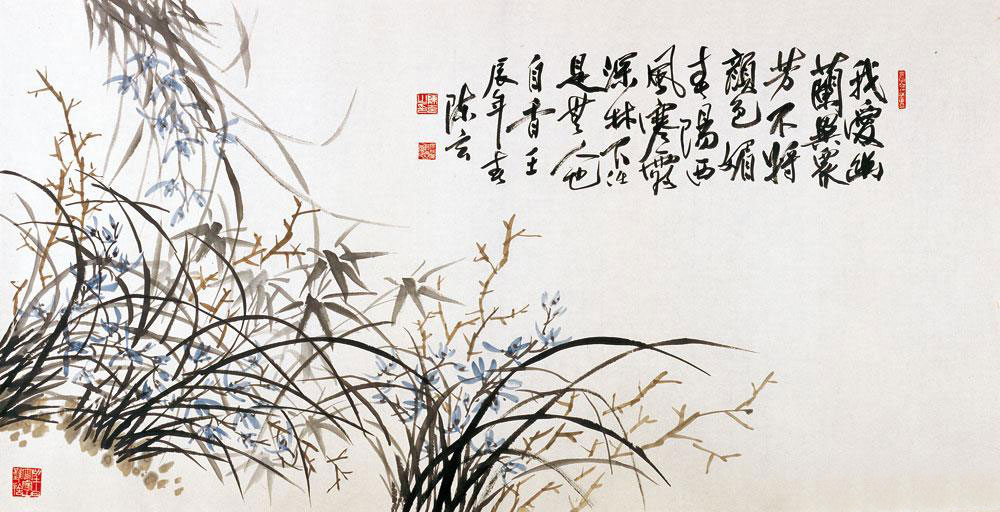 我愛幽
蘭異眾
芳不將
顏色媚
春陽西
風寒露
深林下任
是無人也
自香壬
辰年春
陳云